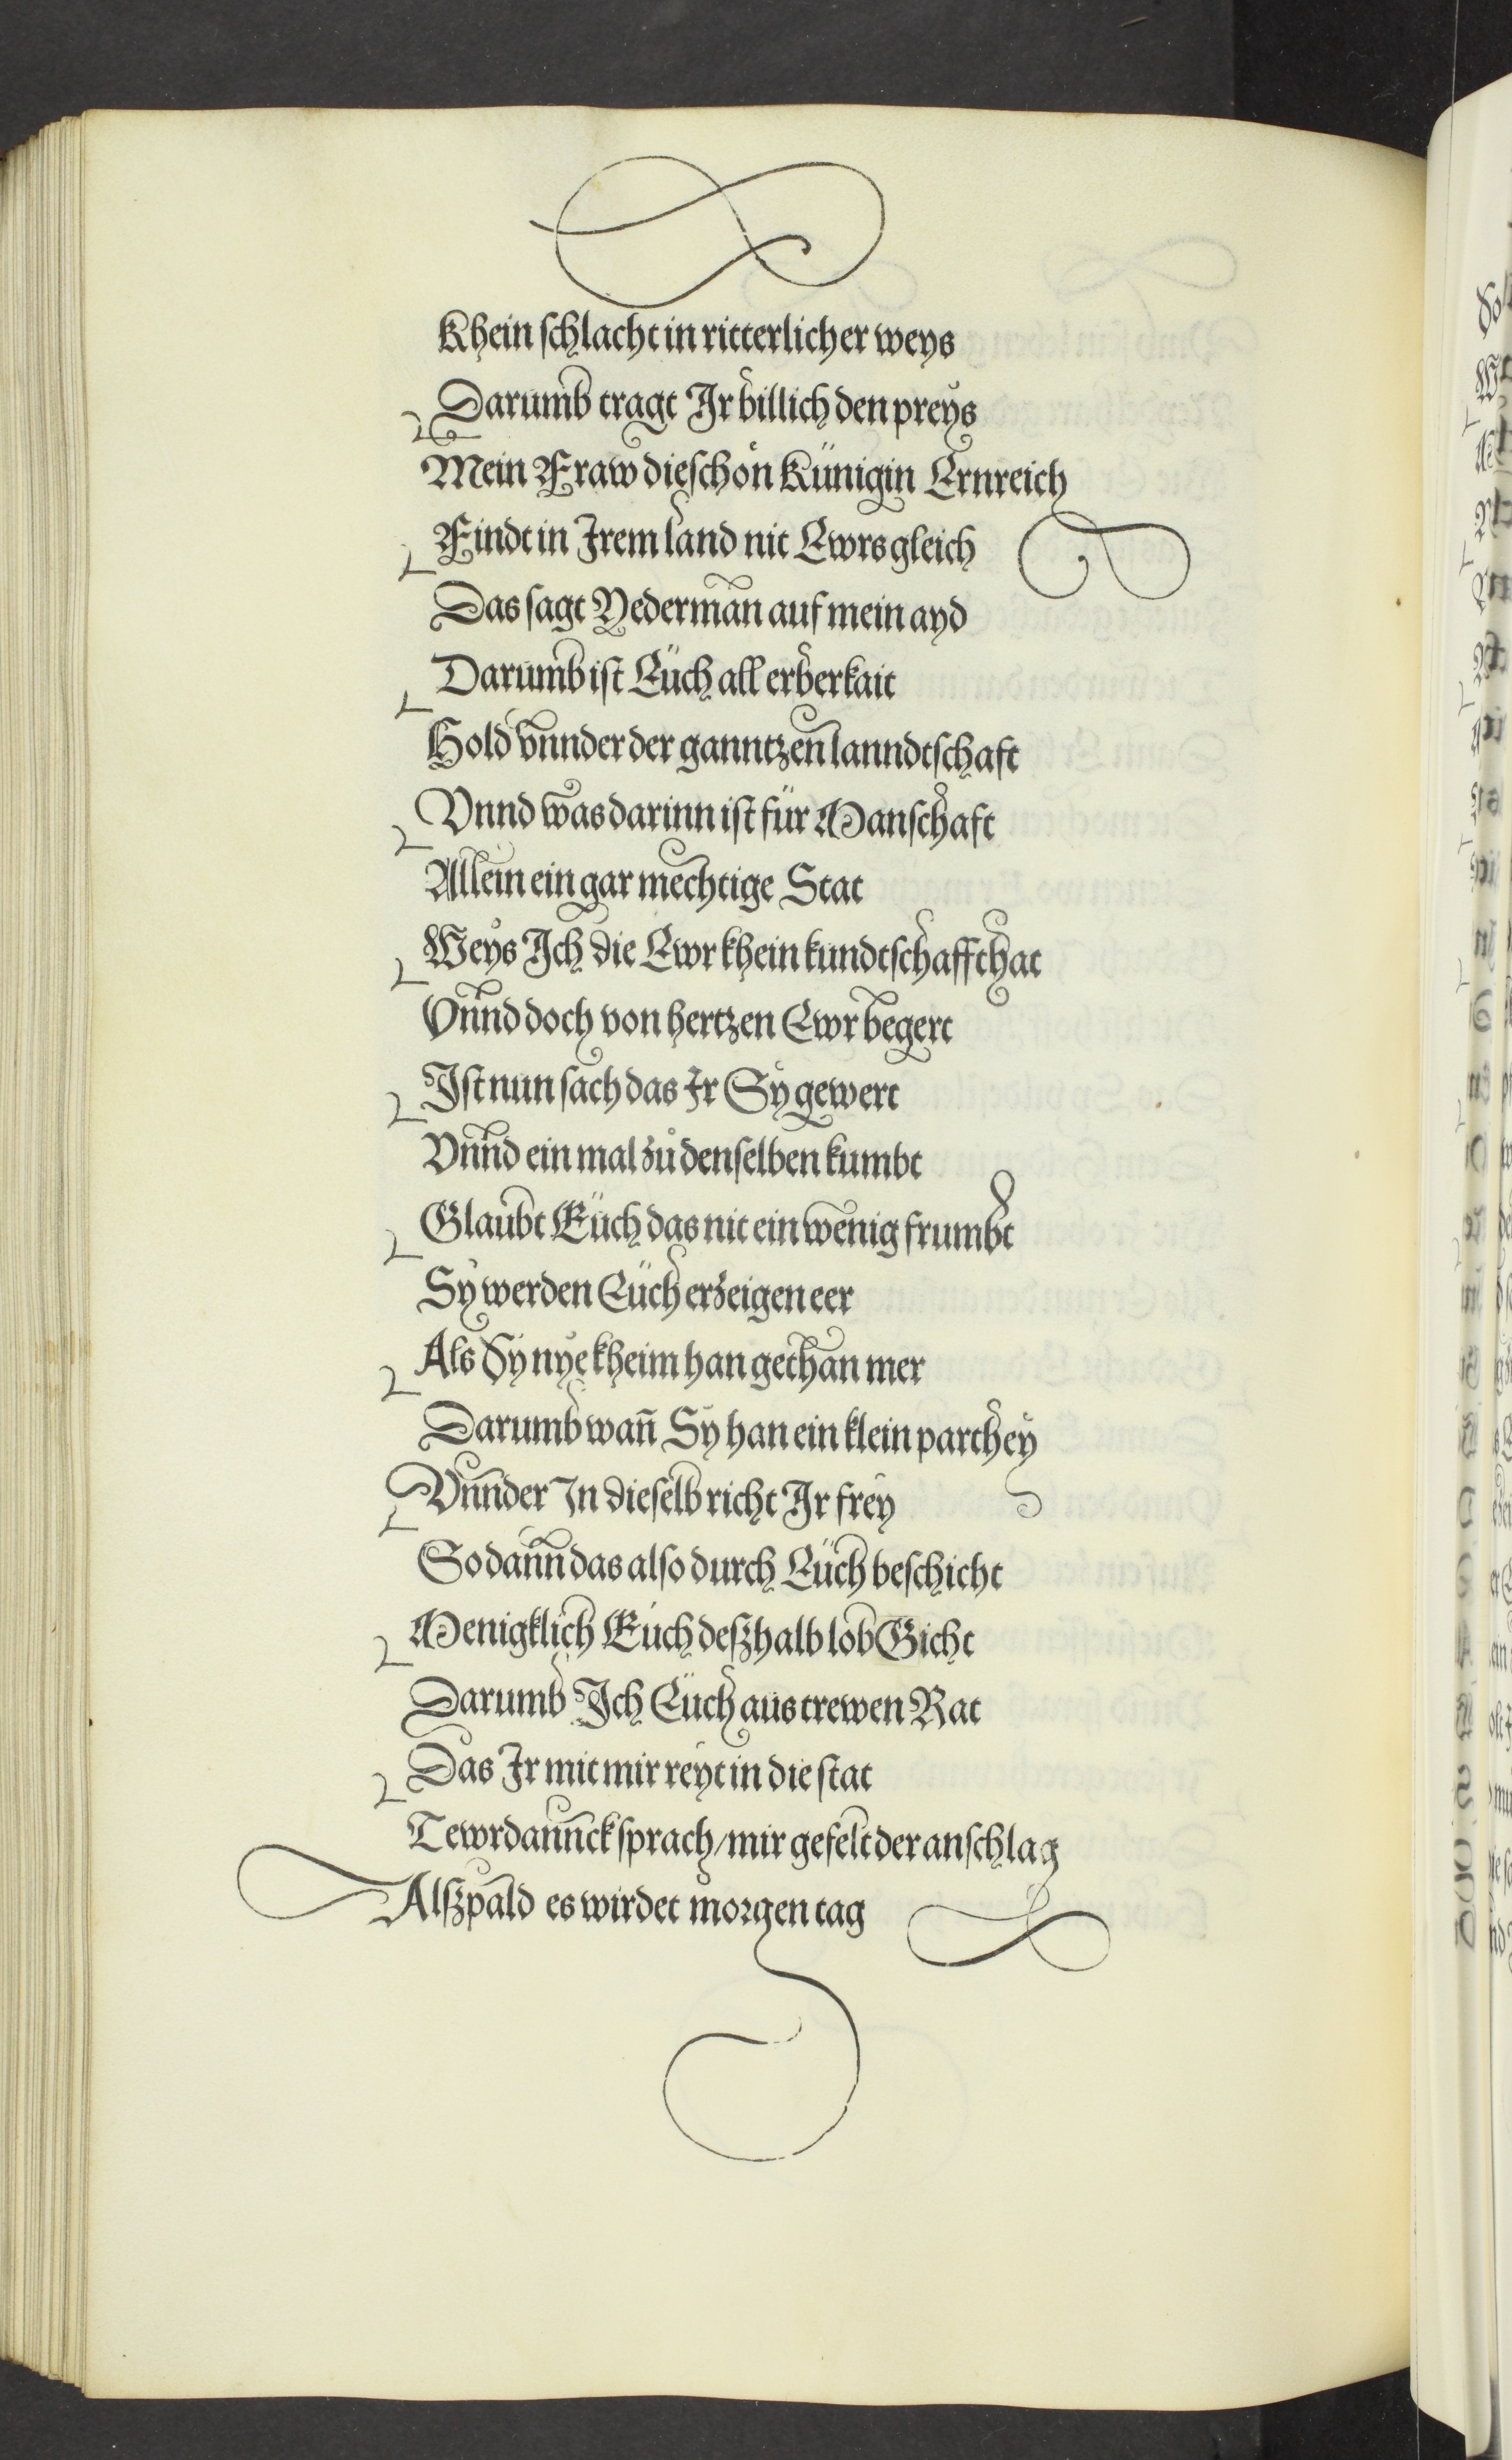 Khein schlacht in ritterlicher weys
Darumb tragt Ir billich den preys
Mein Fraw die schön Künigin Ernreich
Findt in Irem land nit Ewrs gleich
Das sagt Yederman auf mein ayd
Darumb ist Eüch all erberkait
Hold vnnder der ganntzen lanndtschaft
Vnnd was darinn ist für Manschaft
Allein ein gar mechtige Stat
Weys Ich die Ewr khein kundtschafft hat
Vnnd doch von hertzen Ewr begert
Ist nun sach das Ir Sy gewert
Vnnd ein mal zů denselben kumbt
Glaubt Eüch das nit ein wenig frumbt
Sy werden Eüch erzeigen eer
Als Sy nye kheim han gethan mer
Darumb wañ Sy han ein klein parthey
Vnnder In dieselb richt Ir frey
So dann das also durch Eüch beschicht
Menigklich Eüch deßhalb lob Gicht
Darumb Ich Eüch aus trewen Rat
Das Ir mit mir reyt in die stat
Tewrdannck sprach/mir gefelt der anschlag
Alßpald es wirdet morgen tag